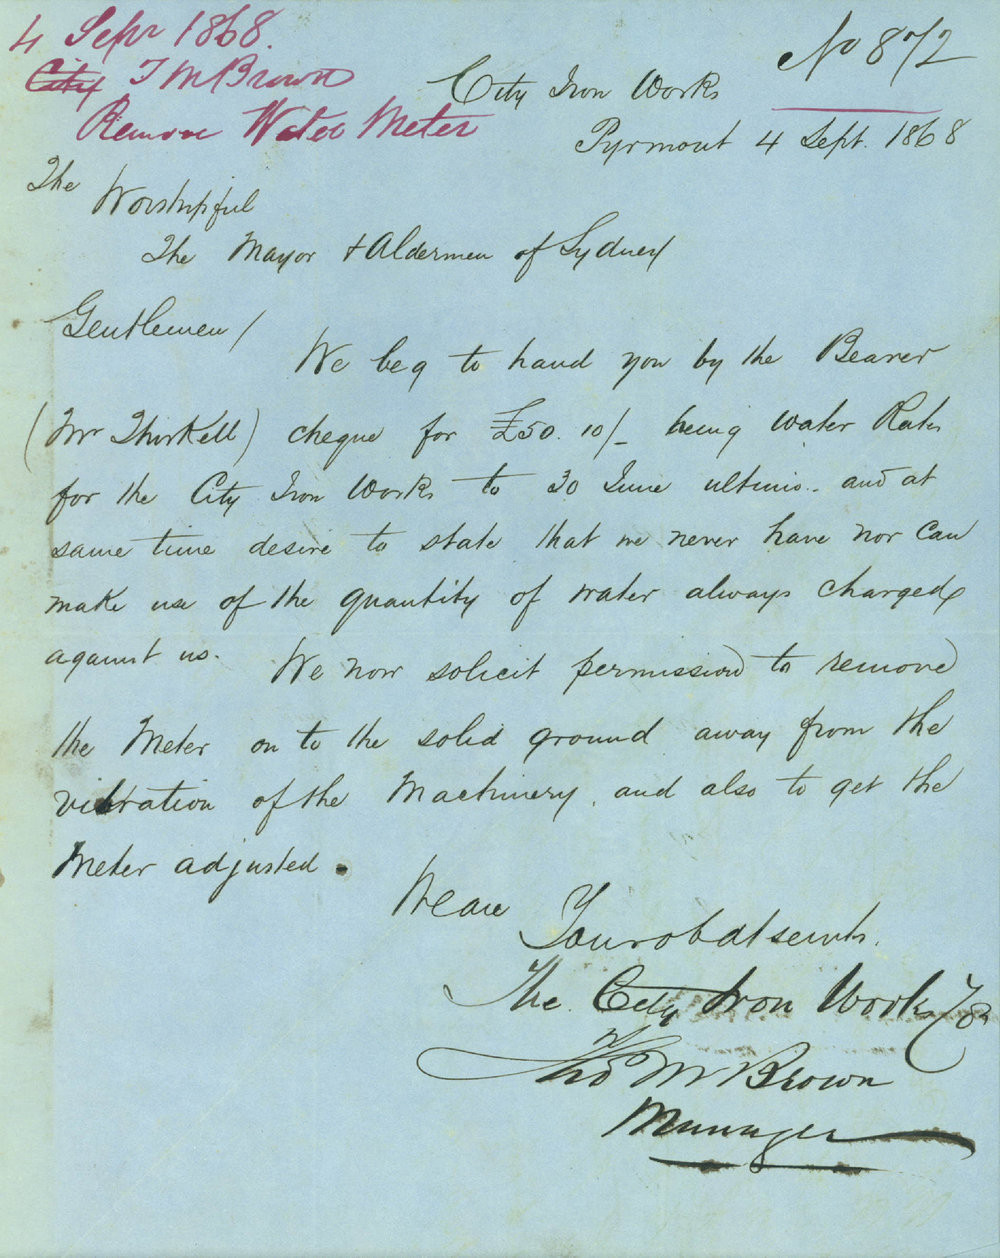 4 Sepr 1868.
City T M Brown
Remove Water Meter
No 872
City Iron Works
Pyrmont 4 Sept. 1868
The
Worshipful
The Mayor & Aldermen of Sydney
Gentlemen/
We beg to hand you by the Bearer
(Mr Thirkell) cheque for £50.10/- being Water Rates
for the City Iron Works to 30 June ultimo. and at
same time desire to state that we never have nor can
make use of the quantity of water always charged
against us. We now solicit permission to remove
the Meter on to the solid ground away from the
vibration of the Machinery, and also to get the
Meter adjusted.
We are
Your obdt servts.
The City Iron Works
Thos M Brown
Manager